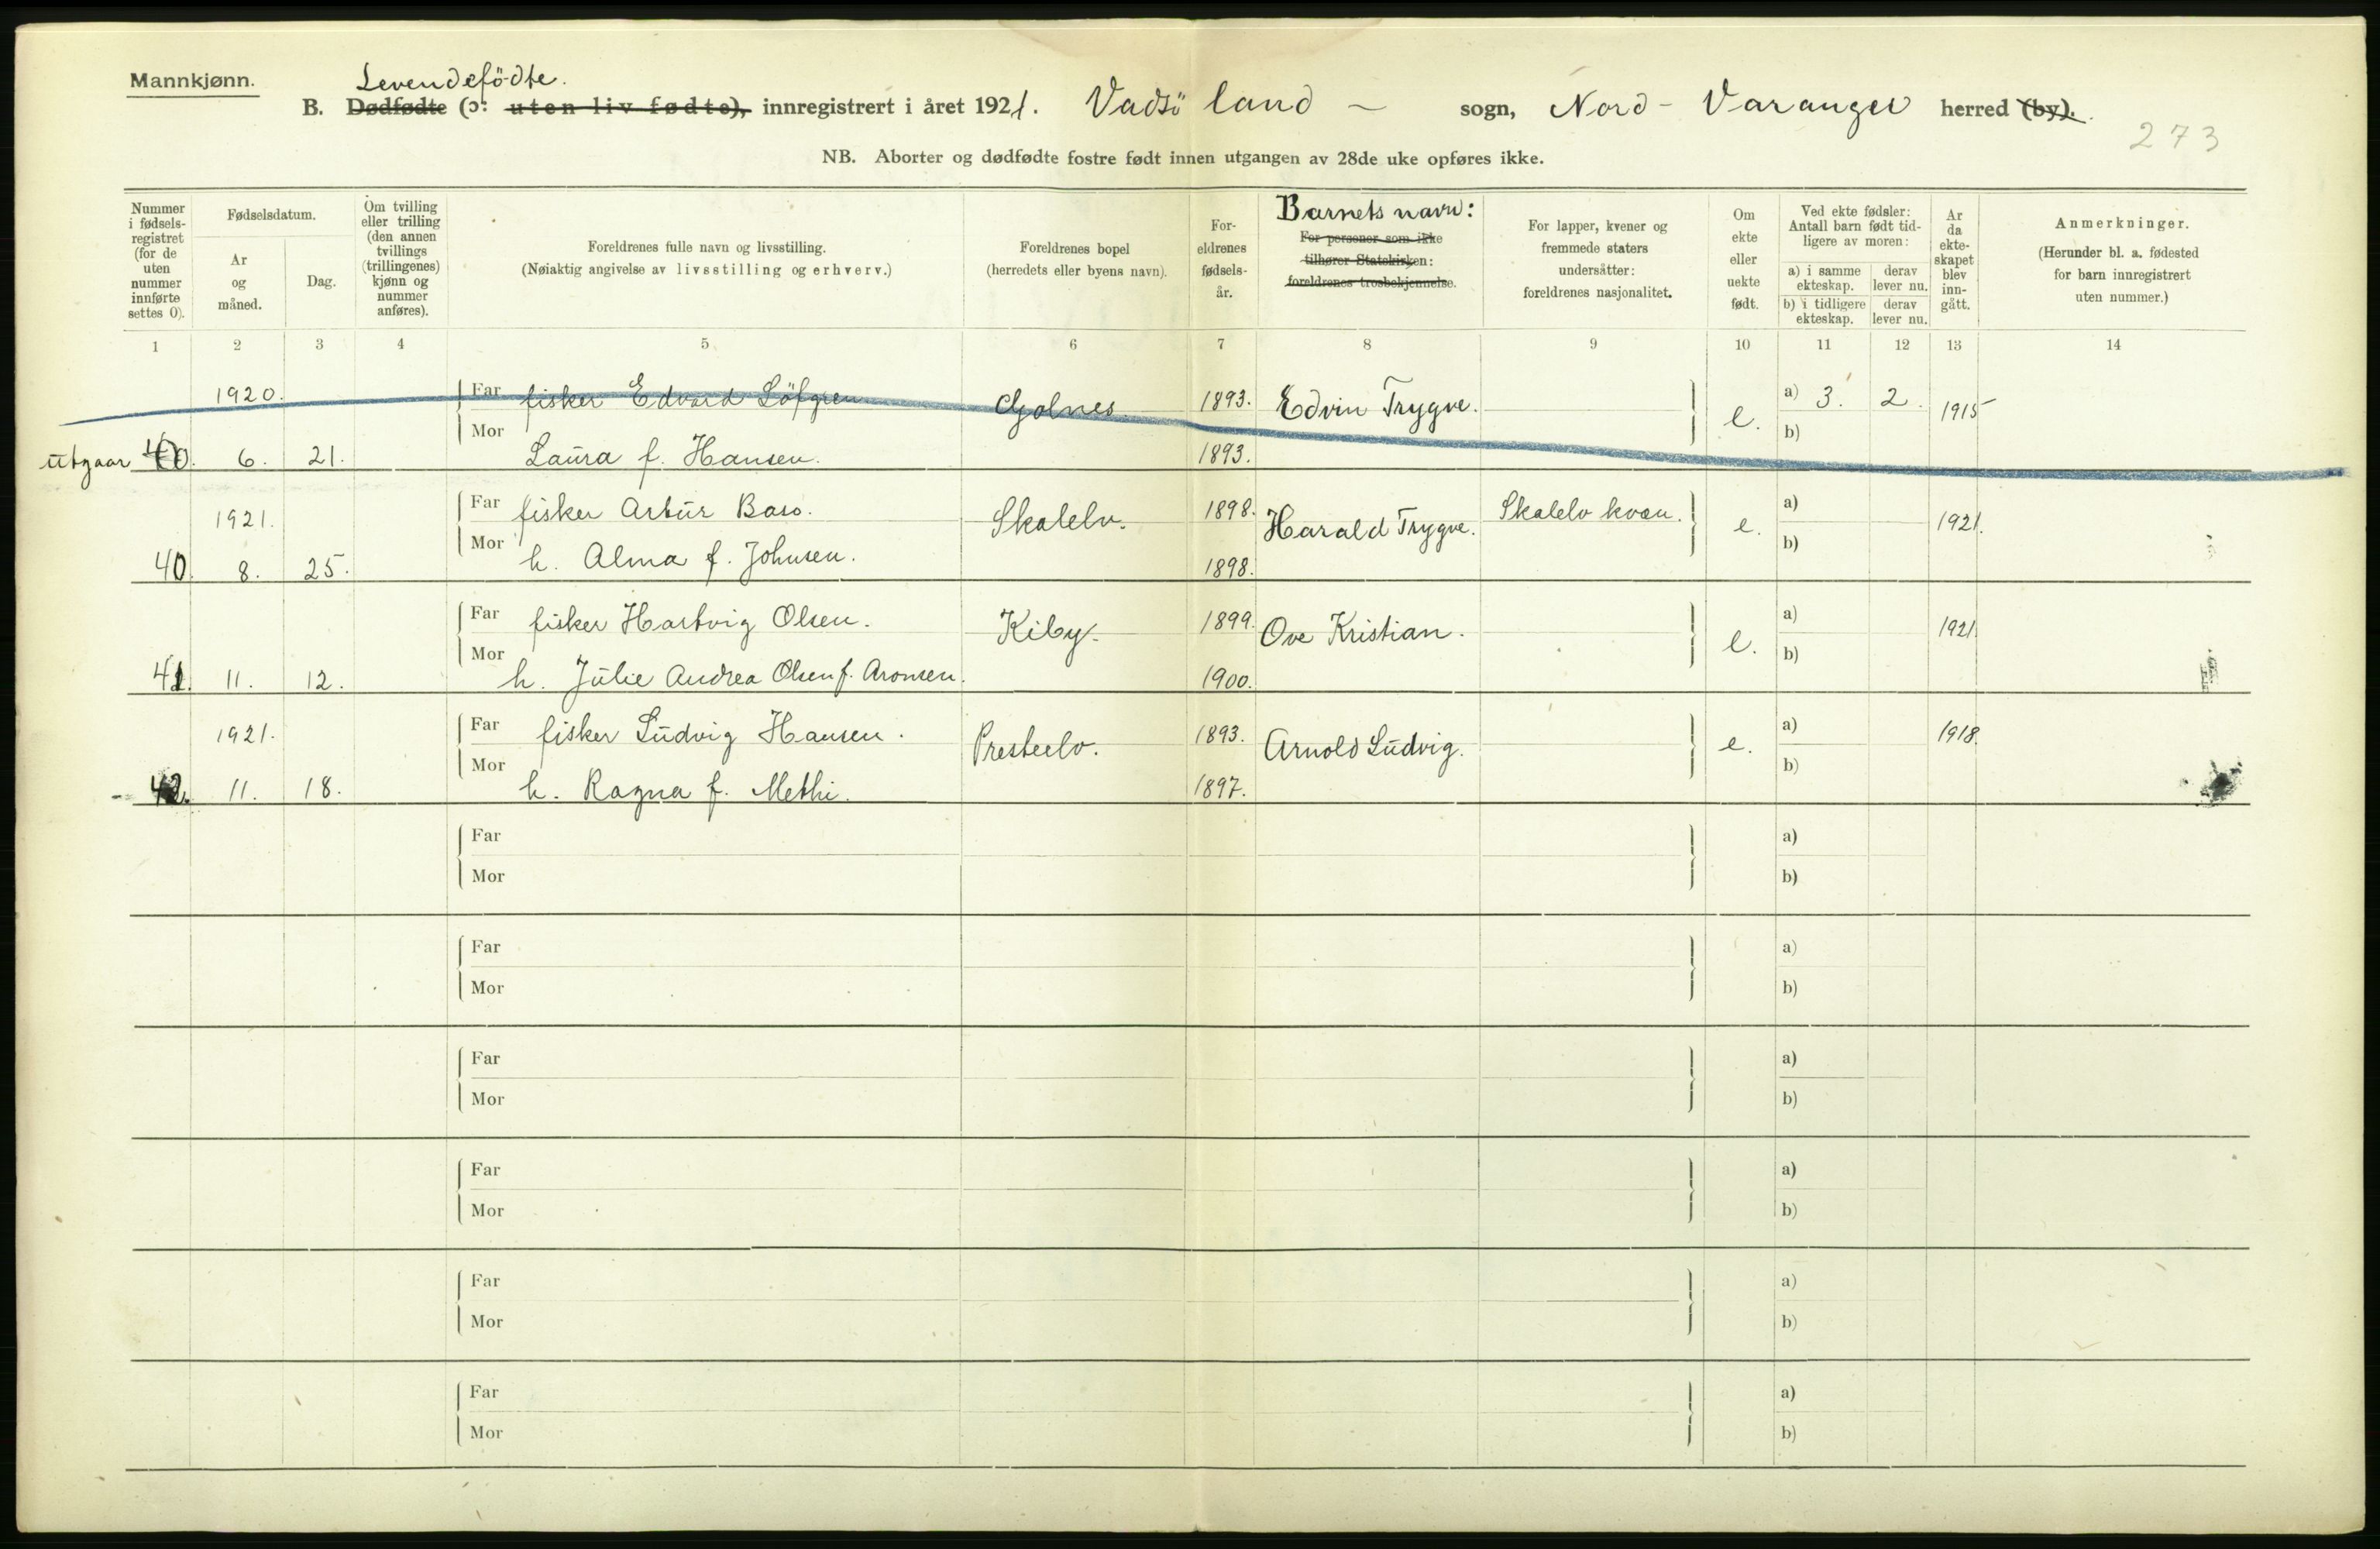 Mannkjønn.
Levendefödte.
B. Dødfødte (ɔ: uten liv fødte), innregistrert i året 1921. Vadsö land - sogn, Nord-Varanger herred (by).
273
NB. Aborter og dødfødte fostre født innen utgangen av 28de uke opføres ikke.
Nummer i fødsels-registret (for de uten nummer innførte settes 0).
Fødselsdatum.
År og måned.
Dag.
Om tvilling eller trilling (den annen tvillings (trillingenes) kjønn og nummer anføres).
Foreldrenes fulle navn og livsstilling.
(Nøiaktig angivelse av livsstilling og erhverv.)
Foreldrenes bopel
(herredets eller byens navn).
For-eldrenes fødsels-år.
Barnets navn:
For personer som ikke tilhører Statskirken: foreldrenes trosbekjennelse.
For lapper, kvener og fremmede staters undersåtter: foreldrenes nasjonalitet.
Om ekte eller uekte født.
Ved ekte fødsler: Antall barn født tidligere av moren:
a) i samme ekteskap.
derav lever nu.
b) i tidligere ekteskap.
derav lever nu.
År da ekte-skapet blev inn-gått.
Anmerkninger.
(Herunder bl. a. fødested for barn innregistrert uten nummer.)
1 2 3 4 5 6 7 8 9 10 11 12 13 14
1920. Far fisker Edvard Löfgren Golnes. 1893. Edvin Trygve. e. a) 3. 2. 1915
utgaar 40. 6. 21. Mor Laura f. Hansen. 1893. b)
1921. Far fisker Artur Baso. Skalelv. 1898. Harald Trygve. Skalelv kvæn. e. a) 1921.
40. 8. 25. Mor h. Alma f. Johnsen. 1898. b)
Far fisker Hartvig Olsen. Kiby. 1899. Ove Kristian. e. a) 1921
41. 11. 12. Mor h. Julie Andrea Olsen f. Aronsen. 1900. b)
1921. Far fisker Ludvig Hansen. Presteelv. 1893. Arnold Ludvig. e. a) 1918.
42. 11. 18. Mor h. Ragna f. Methi. 1897. b)
Far a)
Mor b)
Far a)
Mor b)
Far a)
Mor b)
Far a)
Mor b)
Far a)
Mor b)
Far a)
Mor b)